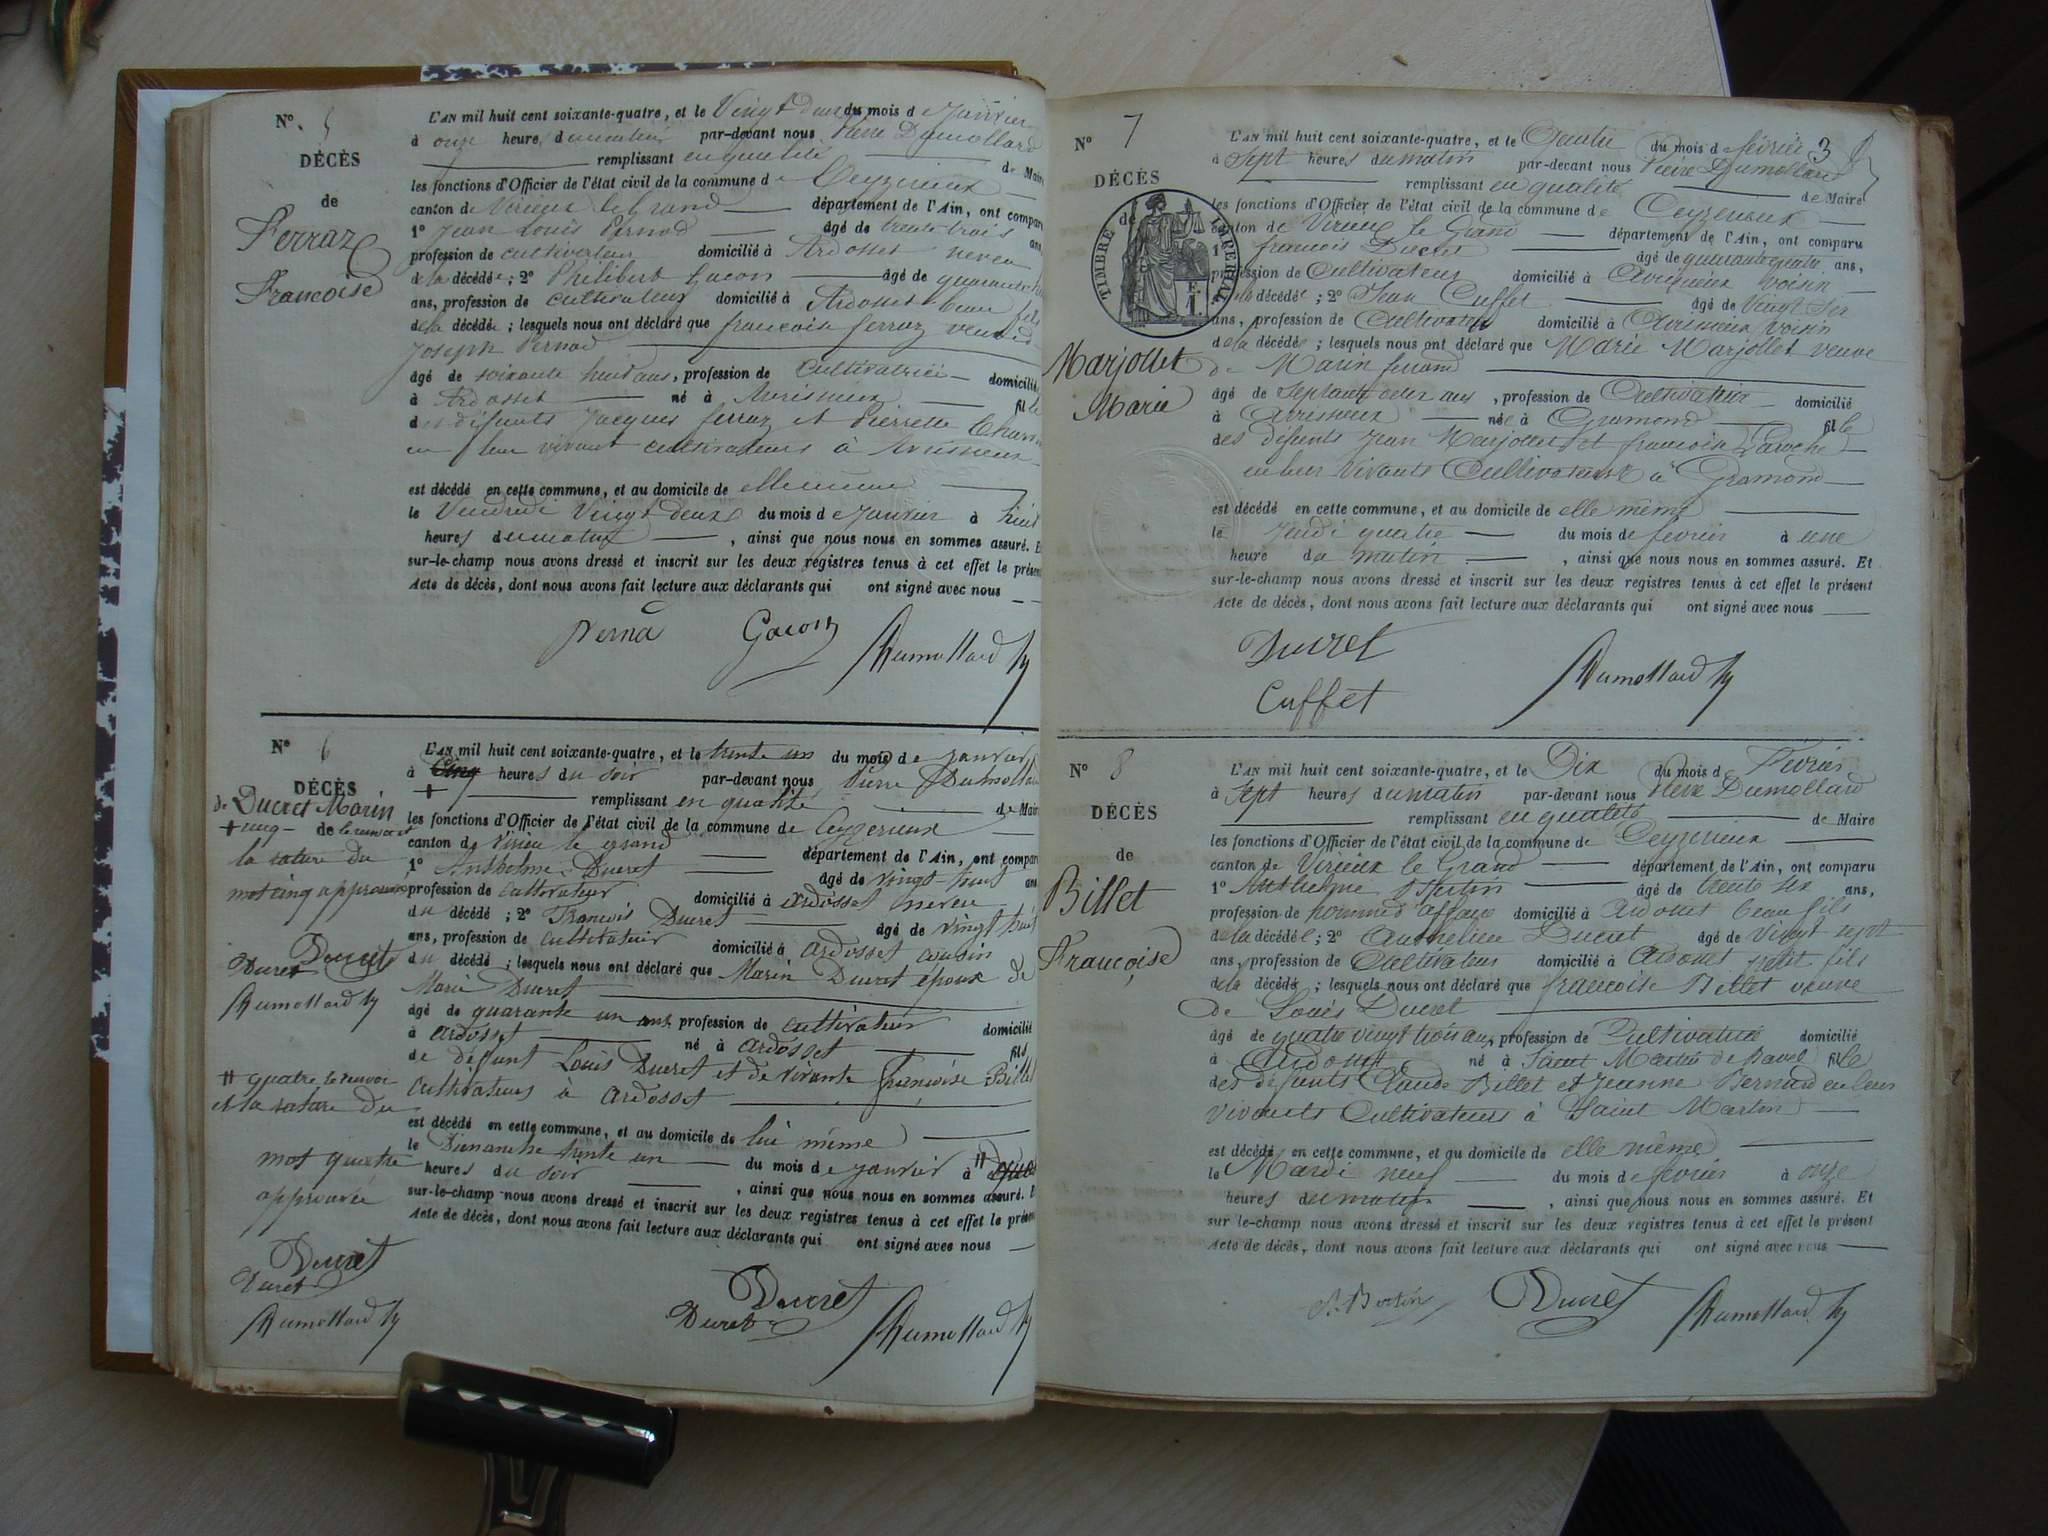 N° 5
DÉCÈS
de
Ferraz
Francoise
L'AN mil huit cent soixante-quatre, et le Vingt deux du mois de Janvier
à onze heures du matin par-devant nous Pierre Dumollard
remplissant en qualité de Maire
les fonctions d'Officier de l'état civil de la commune de Ceyzerieux
canton de Virieux le Grand département de l'Ain, ont comparu
1° Jean Louis Pernod âgé de trente trois ans
profession de cultivateur domicilié à Ardosset neveu
de la décédée ; 2° Philibert Gacon âgé de quarante
ans, profession de cultivateur domicilié à Ardosset beau fils
de la décédée ; lesquels nous ont déclaré que francoise ferraz veuve de
Joseph Pernod
âgé de soixante huit ans, profession de Cultivatrice domicilié
à Ardosset né à Avrissieux fille
des défunts Jacques ferraz et Pierrette
en leur vivant cultivateurs à Avrissieux
est décédé en cette commune, et au domicile de elle même
le Vendredi Vingt deux du mois de Janvier à huit
heures du matin , ainsi que nous nous en sommes assuré. Et
sur-le-champ nous avons dressé et inscrit sur les deux registres tenus à cet effet le présent
Acte de décès, dont nous avons fait lecture aux déclarants qui ont signé avec nous
Perna Gacon Dumollard
N° 6
DÉCÈS
de Ducret Marin
+ cinq de le renvoi et
la rature du
mot cinq approuvés
Ducret
Ducret
Dumollard
# quatre le renvoi
et la rature du
mot quatre
approuvée
Ducret
Ducret
Dumollard
L'AN mil huit cent soixante-quatre, et le trente un du mois de janvier
à cinq heures du soir par-devant nous Pierre Dumollard
+ remplissant en qualité de Maire
les fonctions d'Officier de l'état civil de la commune de Ceyzerieux
canton de Virieu le grand département de l'Ain, ont comparu
1° Anthelme Ducret âgé de vingt huit ans
profession de cultivateur domicilié à ardosset neveu
du décédé ; 2° François Ducret âgé de vingt huit
ans, profession de cultivateur domicilié à ardosset cousin
du décédé ; lesquels nous ont déclaré que Marin Ducret époux de
Marie Ducret
âgé de quarante un ans profession de cultivateur domicilié
à ardosset né à ardosset fils
de défunt Louis Ducret et de vivante Françoise Billet
cultivateurs à ardosset
est décédé en cette commune, et au domicile de lui même
le Dimanche trente un du mois de janvier à # quatre
heures du soir , ainsi que nous nous en sommes assuré. Et
sur-le-champ nous avons dressé et inscrit sur les deux registres tenus à cet effet le présent
Acte de décès, dont nous avons fait lecture aux déclarants qui ont signé avec nous
Ducret
Ducret Dumollard
3
N° 7
DÉCÈS
de
TIMBRE IMPERIAL
Marjollet
Marie
L'AN mil huit cent soixante-quatre, et le Quatre du mois de février
à Sept heures du matin par-devant nous Pierre Dumollard
remplissant en qualité de Maire
les fonctions d'Officier de l'état civil de la commune de Ceyzerieux
canton de Virieux le Grand département de l'Ain, ont comparu
1° francois Ducret âgé de quarante quatre ans,
profession de Cultivateur domicilié à Avrissieux voisin
de la décédée ; 2° Jean Cuffet âgé de Vingt six
ans, profession de Cultivateur domicilié à Avrissieux voisin
de la décédée ; lesquels nous ont déclaré que Marie Marjollet veuve
de Marin
âgé de Septante deux ans , profession de Cultivatrice domicilié
à Avrissieux née à Gramond fille
des défunts Jean Marjollet et francoise Laroche
en leur vivants Cultivateurs à Gramond
est décédé en cette commune, et au domicile de elle même
le Jeudi quatre du mois de février à une
heure du matin , ainsi que nous nous en sommes assuré. Et
sur-le-champ nous avons dressé et inscrit sur les deux registres tenus à cet effet le présent
Acte de décès, dont nous avons fait lecture aux déclarants qui ont signé avec nous
Ducret
Cuffet Dumollard
N° 8
DÉCÈS
de
Billet
Françoise
L'AN mil huit cent soixante-quatre, et le Dix du mois de Février
à Sept heures du matin par-devant nous Pierre Dumollard
remplissant en qualité de Maire
les fonctions d'Officier de l'état civil de la commune de Ceyzerieux
canton de Virieux le Grand département de l'Ain, ont comparu
1° Anthelme Bertin âgé de trente six ans,
profession de hommes d'affaire domicilié à Ardosset beau fils
de la décédée ; 2° Anthelme Ducret âgé de Vingt sept
ans, profession de Cultivateur domicilié à Ardosset petit fils
de la décédée ; lesquels nous ont déclaré que francoise Billet veuve
de Louis Ducret
âgé de quatre vingt trois ans, profession de Cultivatrice domicilié
à Ardosset né à Saint Martin de Bavel fille
des défunts Claude Billet et Jeanne Bernard en leur
vivants Cultivateurs à Saint Martin
est décédé en cette commune, et au domicile de elle même
le Mardi neuf du mois de février à onze
heures du matin , ainsi que nous nous en sommes assuré. Et
sur le-champ nous avons dressé et inscrit sur les deux registres tenus à cet effet le présent
Acte de décès, dont nous avons fait lecture aux déclarants qui ont signé avec nous
A. Bertin Ducret Dumollard